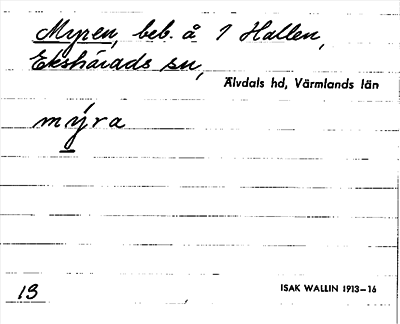 Myren, beb. å 1 Hallen,
Ekshärads sn,
Älvdals hd, Värmlands län
mýra
13
ISAK WALLIN 1913–16